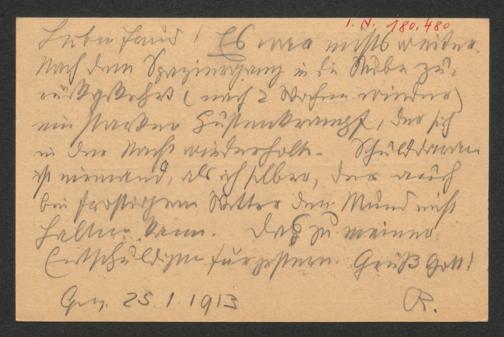 I. N. 180.480
Lieber Freund! Es war nichts weiter.
Nach dem Spaziergang in die Stube zu-
rückgekehrt (nach 2 Wochen wieder)
ein starker Hustenkrampf, der sich
in der Nacht wiederholte. Schuld daran
ist niemand, als ich selber, der auch
bei frostigem Wetter den Mund nicht
halten kann. Das zu meiner
Entschuldigung für gestern. Grüß Gott!
25.1.1913 R.